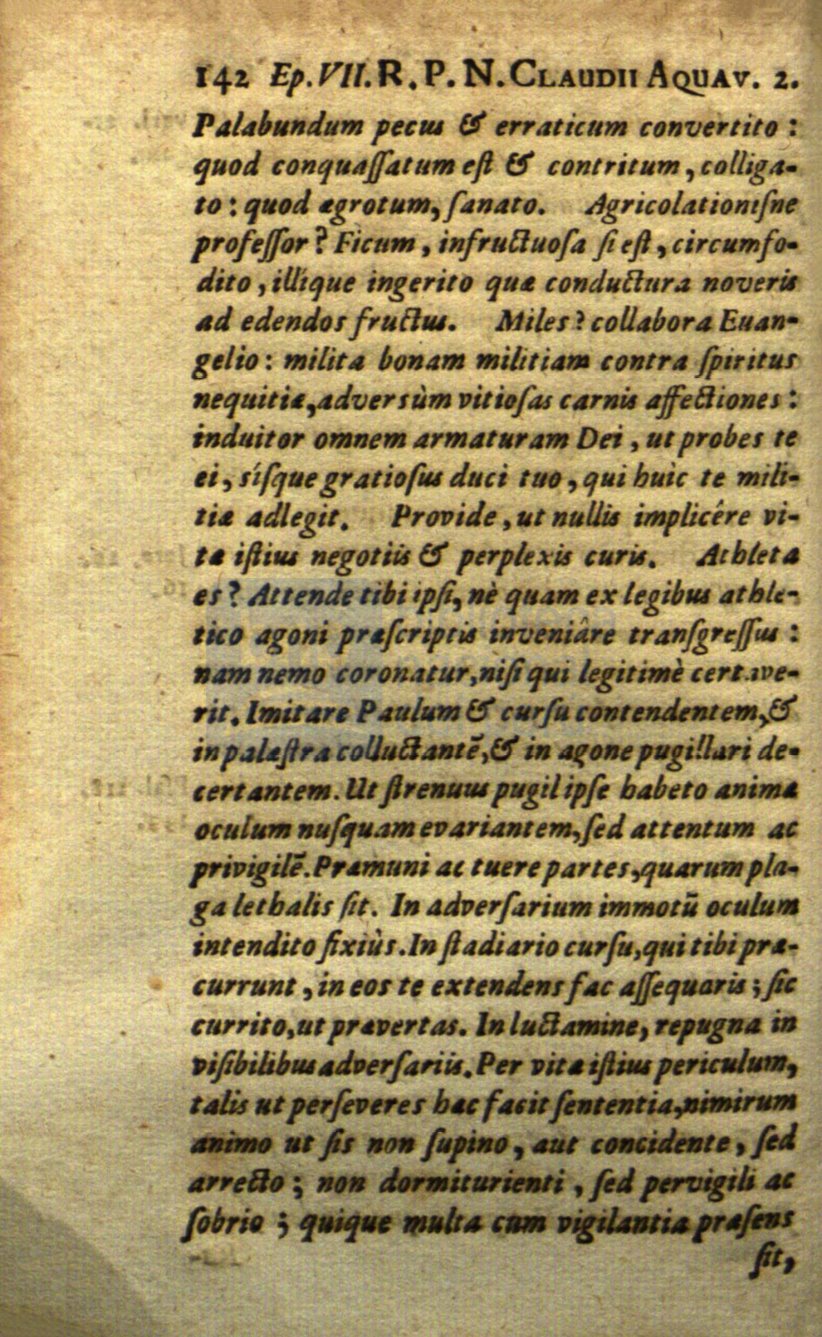 142 Ep. VII. R. P. N. CLAUDII AQUAV. 2.
Palabundum pecus & erraticum convertito :
quod conquaſſatum eſt & contritum, colliga-
to : quod ægrotum, ſanato. Agricolationiſne
profeſſor? Ficum, infructuoſa ſi eſt, circumfo-
dito, illique ingerito quæ conductura noveris
ad edendos fructus. Miles? collabora Euan-
gelio: milita bonam militiam contra ſpiritus
nequitiæ, adversùm vitioſas carnis affectiones :
induitor omnem armaturam Dei, ut probes te
ei, síſque gratioſus duci tuo, qui huic te mili-
tiæ adlegit. Provide, ut nullis implicére vi-
tæ iſtius negotiis & perplexis curis. Athleta
es? Attende tibi ipſi, nè quam ex legibus athle-
tico agoni præſcriptis inveniâre tranſgreſſus :
nam nemo coronatur, niſi qui legitimè certave-
rit. Imitare Paulum & curſu contendentem, &
in palæſtra colluctantē, & in agone pugillari de-
certantem. Ut ſtrenuus pugil ipſe habeto animæ
oculum nuſquam evariantem, ſed attentum ac
privigilē. Præmuni ac tuere partes, quarum pla-
ga lethalis ſit. In adverſarium immotū oculum
intendito fixiùs. In ſtadiario curſu, qui tibi præ-
currunt, in eos te extendens fac aſſequaris ; ſic
currito, ut prævertas. In luctamine, repugna in
viſibilibus adverſariis. Per vitæ iſtius periculum,
talis ut perſeveres hæc facit ſententia, nimirum
animo ut ſis non ſupino, aut concidente, ſed
arrecto ; non dormiturienti, ſed pervigili ac
ſobrio ; quique multa cum vigilantia præſens
ſit,